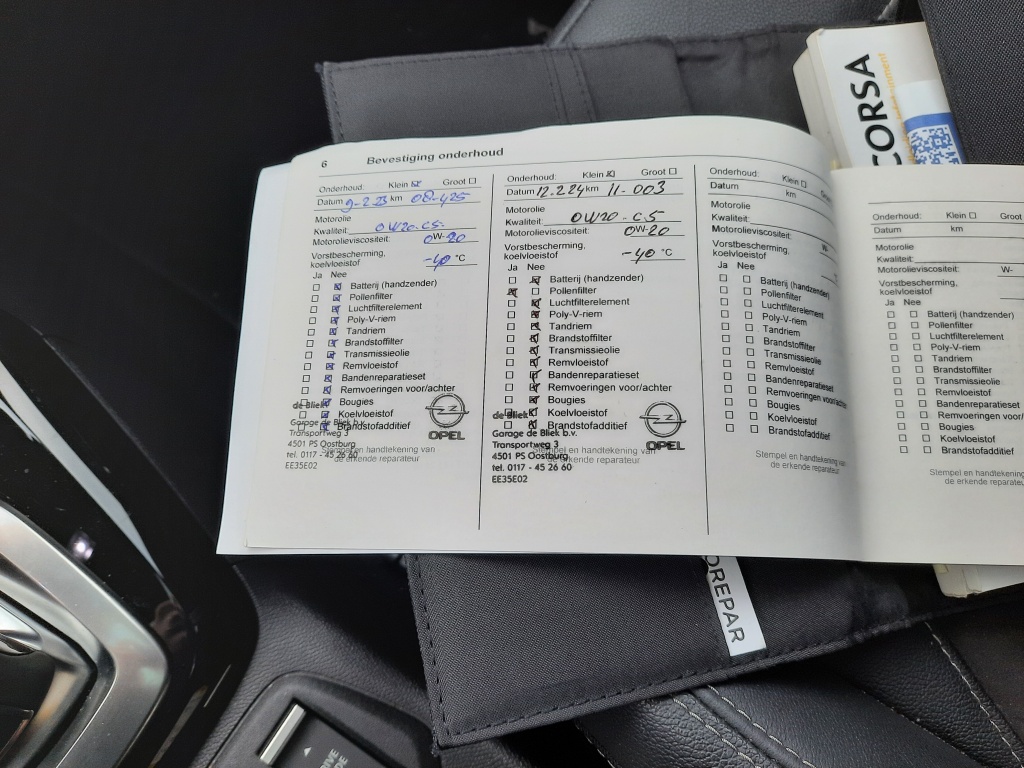 6 Bevestiging onderhoud
Onderhoud: Klein Groot
Datum 9-2 23 km 08-425
Motorolie
Kwaliteit: 0W20-C5-
Motorolieviscositeit: 0W-20
Vorstbescherming,
koelvloeistof -40 °C
Ja Nee
Batterij (handzender)
Pollenfilter
Luchtfilterelement
Poly-V-riem
Tandriem
Brandstoffilter
Transmissieolie
Remvloeistof
Bandenreparatieset
Remvoeringen voor/achter
Bougies
Koelvloeistof
Brandstofadditief
de Bliek
Garage de Bliek b.v.
Transportweg 3
4501 PS Oostburg
tel. 0117 - 45 26 60
EE35E02
OPEL
Stempel en handtekening van
de erkende reparateur
Onderhoud: Klein Groot
Datum 12-2-24 km 11-003
Motorolie
Kwaliteit: 0W20-C5
Motorolieviscositeit: 0W-20
Vorstbescherming,
koelvloeistof -40 °C
Ja Nee
Batterij (handzender)
Pollenfilter
Luchtfilterelement
Poly-V-riem
Tandriem
Brandstoffilter
Transmissieolie
Remvloeistof
Bandenreparatieset
Remvoeringen voor/achter
Bougies
Koelvloeistof
Brandstofadditief
de Bliek
Garage de Bliek b.v.
Transportweg 3
4501 PS Oostburg
tel. 0117 - 45 26 60
EE35E02
OPEL
Stempel en handtekening van
de erkende reparateur
Onderhoud: Klein Groot
Datum km
Motorolie
Kwaliteit:
Motorolieviscositeit: W
Vorstbescherming,
koelvloeistof
Ja Nee
Batterij (handzender)
Pollenfilter
Luchtfilterelement
Poly-V-riem
Tandriem
Brandstoffilter
Transmissieolie
Remvloeistof
Bandenreparatieset
Remvoeringen voor/achter
Bougies
Koelvloeistof
Brandstofadditief
Stempel en handtekening
de erkende reparateur
Onderhoud: Klein Groot
Datum km
Motorolie
Kwaliteit:
Motorolieviscositeit: W-
Vorstbescherming,
koelvloeistof
Ja Nee
Batterij (handzender)
Pollenfilter
Luchtfilterelement
Poly-V-riem
Tandriem
Brandstoffilter
Transmissieolie
Remvloeistof
Bandenreparatieset
Remvoeringen voor/
Bougies
Koelvloeistof
Brandstofadditief
Stempel en handteken
de erkende reparateur
CORSA
OREPAR